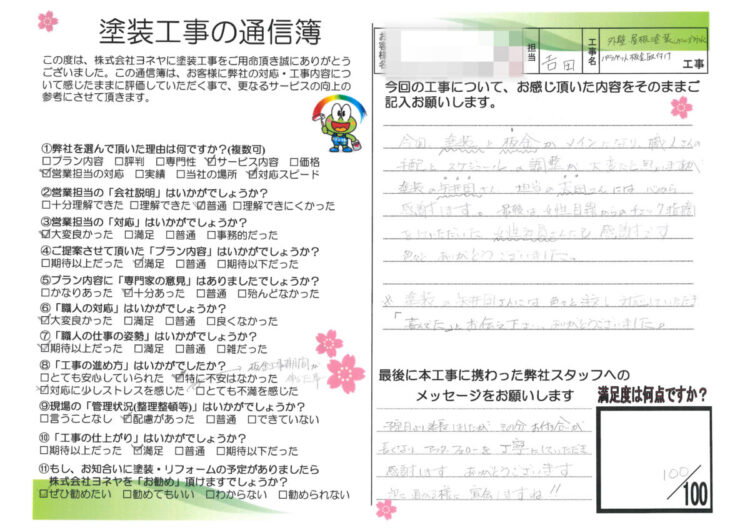 塗装工事の通信簿
この度は、株式会社ヨネヤに塗装工事をご用命頂き誠にありがとう
ございました。この通信簿は、お客様に弊社の対応・工事内容につ
いて感じたままに評価していただく事で、更なるサービスの向上の
参考にさせて頂きます。
①弊社を選んで頂いた理由は何ですか?(複数可)
□プラン内容 □評判 □専門性 ☑サービス内容 □価格
☑営業担当の対応 □実績 □当社の場所 ☑対応スピード
②営業担当の「会社説明」はいかがでしょうか?
□十分理解できた □理解できた ☑普通 □理解できにくかった
③営業担当の「対応」はいかがでしょうか?
☑大変良かった □満足 □普通 □事務的だった
④ご提案させて頂いた「プラン内容」はいかがでしょうか?
□期待以上だった ☑満足 □普通 □期待以下だった
⑤プラン内容に「専門家の意見」はありましたでしょうか?
□かなりあった ☑十分あった □普通 □殆んどなかった
⑥「職人の対応」はいかがでしょうか?
☑大変良かった □満足 □普通 □良くなかった
⑦「職人の仕事の姿勢」はいかがでしょうか?
☑期待以上だった □満足 □普通 □雑だった
⑧「工事の進め方」はいかがでしたか?
□とても安心していられた ☑特に不安はなかった
☑対応に少しストレスを感じた □とても不満を感じた
⑨現場の「管理状況(整理整頓等)」はいかがでしょうか?
□言うことなし ☑配慮があった □普通 □できていない
⑩「工事の仕上がり」はいかがでしょうか?
□期待以上だった ☑満足 □普通 □期待以下だった
⑪もし、お知合いに塗装・リフォームの予定がありましたら
株式会社ヨネヤを「お勧め」頂けますでしょうか?
☑ぜひ勧めたい □勧めてもいい □わからない □勧められない
お客様名
担当
吉田
工事名
外壁屋根塗装
工事
今回の工事について、お感じ頂いた内容をそのままご
記入お願いします。
今回、塗装と板金がメインになり、職人さんの
手配とスケジュールの調整が大変だったと思います
感謝します。最後は女性目線からのチェック指摘
をいただいた女性社員さんにも感謝です
ありがとうございました。
最後に本工事に携わった弊社スタッフへの
メッセージをお願いします
予定より
感謝します ありがとうございます
満足度は何点ですか?
100
/100